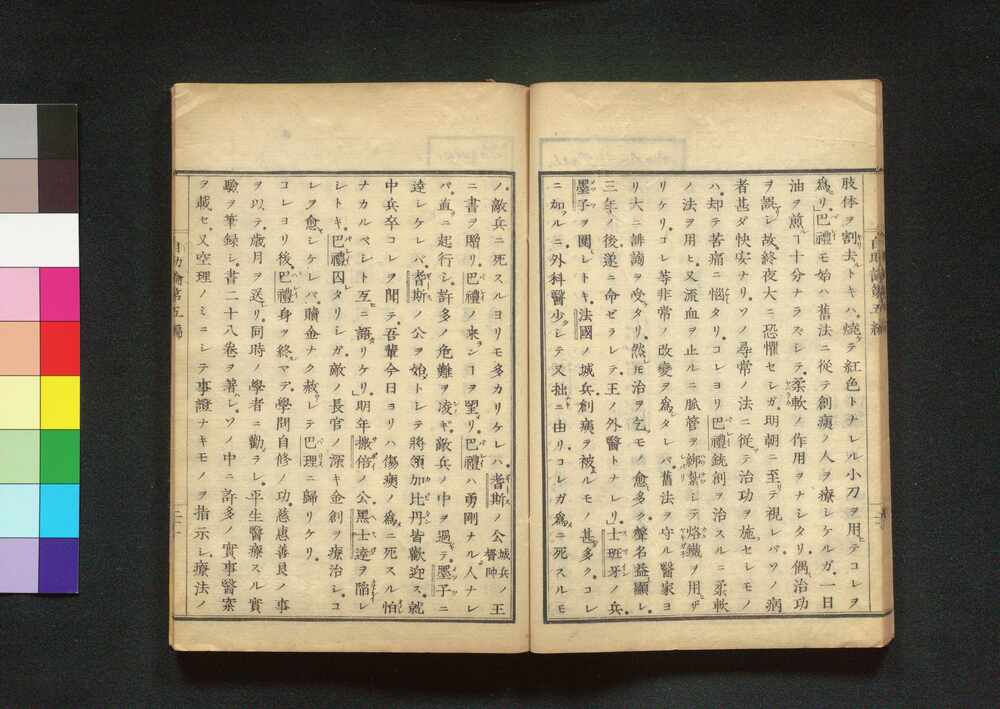 肢体ヲ割去トキハ。燒テ紅色トナレル小刀ヲ用テコレヲ
爲リ。巴禮モ始ハ舊法ニ從テ創痍ノ人ヲ療シケルガ。一日
油ヲ煎ヿ十分ナラズシテ。柔軟ノ作用ヲナシタリ。偶治功
ヲ誤シ故。終夜大ニ恐懼セシガ。明朝ニ至テ視レバ。ソノ病
者甚ダ快安ナリ。ソノ尋常ノ法ニ從テ治功ヲ施セシモノ
ハ。却テ苦痛ニ惱タリ。コレヨリ巴禮銃創ヲ治スルニ柔軟
ノ法ヲ用ヒ。又流血ヲ止ルニ脈管ヲ綁紮シテ。烙鐵ヲ用ザ
リケリ。コレ等非常ノ改變ヲ爲タレバ。舊法ヲ守ル醫家ヨ
リ大ニ誹謗ヲ受タリ。然𪜈治ヲ乞モノ愈多ク。聲名益顯レ。
三年ノ後。遂ニ命ゼラレテ王ノ外醫トナレリ。士班牙ノ兵
墨子ヲ圍シトキ。法國ノ城兵創痍ヲ被ルモノ甚多ク。コレ
ニ加ルニ外科醫少シテ又拙ニ由リ。コレガ爲ニ死スルモ
ノ。敵兵ニ死スルヨリモ多カリケレバ。耆斯ノ公 城兵ノ督帥 王
ニ書ヲ贈リ。巴禮ノ來ンヿヲ望リ。巴禮ハ勇剛ナル人ナレ
バ。直ニ起行シ。許多ノ危難ヲ凌ギ。敵兵ノ中ヲ過テ。墨子ニ
達シケレバ。耆斯ノ公ヲ始トシテ。將領加比丹皆歡迎ス。就
中兵卒コレヲ聞テ。吾輩今日ヨリハ傷痍ノ爲ニ死スル怕
ナカルベシト。互ニ語リケリ。明年撒倍ノ公。黑士達ヲ陷レ
シトキ。巴禮囚タリシガ。敵ノ長官ノ深キ金創ヲ療治シ。コ
レヲ愈シケレバ。贖金ナク赦シテ巴理ニ歸リケリ。
コレヨリ後。巴禮身ヲ終マデ。學問自修ノ功。慈惠善良ノ事
ヲ以テ歳月ヲ送リ。同時ノ學者ニ勸ラレ。平生醫療スル實
驗ヲ筆録シ。書二十八卷ヲ著シ。ソノ中ニ許多ノ實事醫案
ヲ載セ。又空理ノミニシテ事證ナキモノヲ指示シ。療法ノ